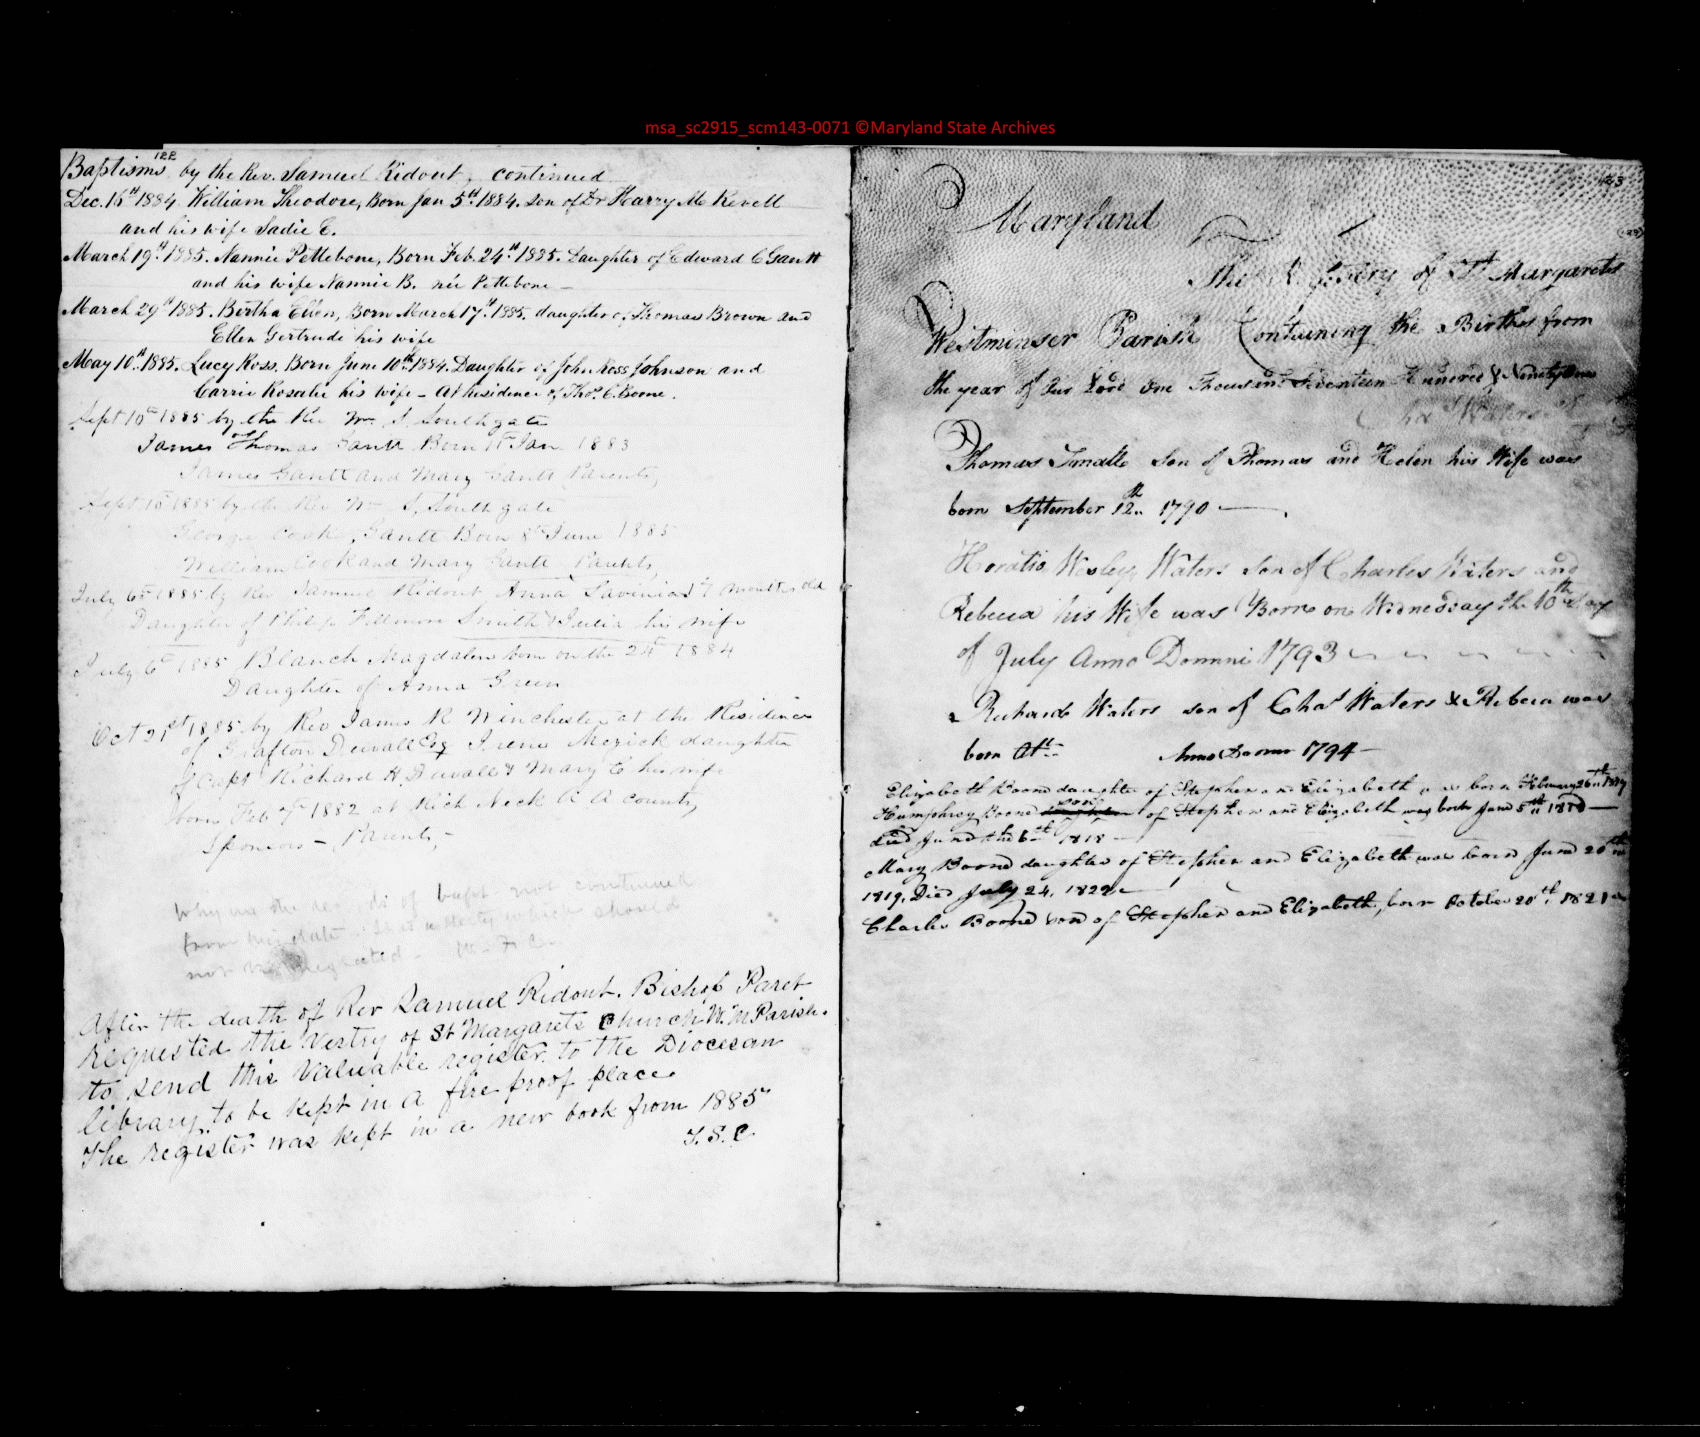 msa_sc2915_scm143-0071 ©Maryland State Archives
122
Baptisms by the Rev. Samuel Ridout, continued
Dec. 16th 1884 William Theodore, Born Jan 5th 1884. Son of Dr Harry M Revell
and his wife Sadie E.
March 19th 1885. Nannie Pettebone, Born Feb. 24th 1885. Daughter of Edward C Gantt
and his wife Nannie B. née Pettebone —
March 29th 1885. Birtha Ellen, Born March 17th 1885. daughter of Thomas Brown and
Ellen Gertrude his wife
May 10th 1885. Lucy Ross. Born June 10th 1884. Daughter of John Ross Johnson and
Carrie Rosalie his wife — At Residence of Thos. C. Boone.
Sept 10th 1885 by the Rev Wm S. Southgate
James Thomas Gantt Born Jan 1883
James Gantt and Mary Gantt Parents,
Sept 10 1885 by the Rev Wm S. Southgate
George Cook, Gantt Born 8th June 1885
William Cook and Mary Gantt Parents,
July 6th 1885 by Rev Samuel Ridout Anna Lavenia 17 months old
Daughter of Philip Fillmore Smith & Julia his wife
July 6th 1885 Blanch Magdalen born on the 24th 1884
Daughter of Anna Green
Oct 21st 1885 by Rev James R Winchester at the Residence
of Grafton Duvall Esq Irene Merick daughter
of Capt Richard H. Duvall & Mary E his wife
born Feb 7th 1882 at Rich Neck A A county,
Sponsors — Parents,
Why was the records of bapt. not continued
from this date. It is a duty which should
not be neglected —
After the death of Rev Samuel Ridout. Bishop Paret
requested the Vestry of St Margarets Church W.m Parish.
to send this Valuable register, to the Diocesan
library, to be kept in a fire proof place
The register was kept in a new book from 1885
T. S. C.
123
(123)
Maryland
The Registery of St Margarets
Westminser Parish Containing the Births from
the year of Our Lord One Thousand Seventeen Hundred & Ninety One
Chas Waters
Thomas Tmalle Son of Thomas and Helen his Wife was
born September 12th 1790 —
Horatio Wesley Waters Son of Charles Waters and
Rebecca his Wife was Borne on Wednesday the 10th Day
of July Anno Domini 1793
Richard Waters son of Chas Waters & Rebecca was
born At Anno Domini 1794 —
Elizabeth Boone daughter of Stephen and Elizabeth was born February 26th
Humphrey Boone son of Stephen and Elizabeth was born June 5th
died June the 6th 1818 —
Mary Boone daughter of Stephen and Elizabeth was born June 20th
1819, Died July 24, 1822
Charles Boone son of Stephen and Elizabeth, born October 20th 1821